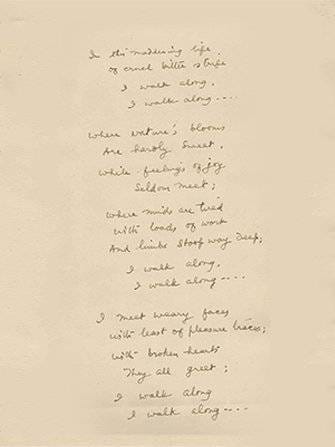 In this maddening life
of cruel bitter strife
I walk along,
I walk along....
Where nature's blooms
Are hardly sweet,
While feelings of joy
Seldom meet;
Where minds are tired
with loads of work
And limbs stoop way deep;
I walk along,
I walk along....
I meet weary faces
with least of pleasure traces;
with broken hearts
They all greet;
I walk along
I walk along....